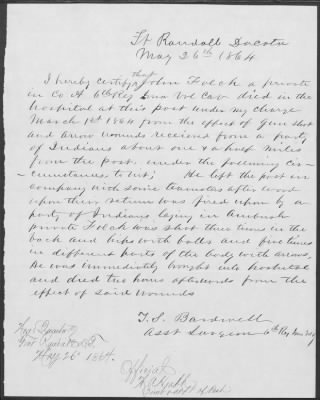 Ft Randall Dacota
May 26th 1864
I hereby certify that John Folck a private
in Co A 6th Reg Iowa Vol Cav died in the
hospital at this post under my charge
March 1st 1864 from the effect of Gun shot
and Arrow wounds received from a party
of Indians about one & a half miles
from the post. under the following Cir-
-cumstances to wit; He left the post in
company with some teamsters after wood
upon their return was fired upon by a
party of Indians laying in Ambush
private Folck was shot three times in the
back and hips with balls and five times
in different parts of the body with arrows.
He was immediately brought into hospital
and died two hours afterwards from the
effect of said wounds
T. S. Bardwell
Asst Surgeon 6th Reg Iowa
Fort Randall
May 26 1864.
Official